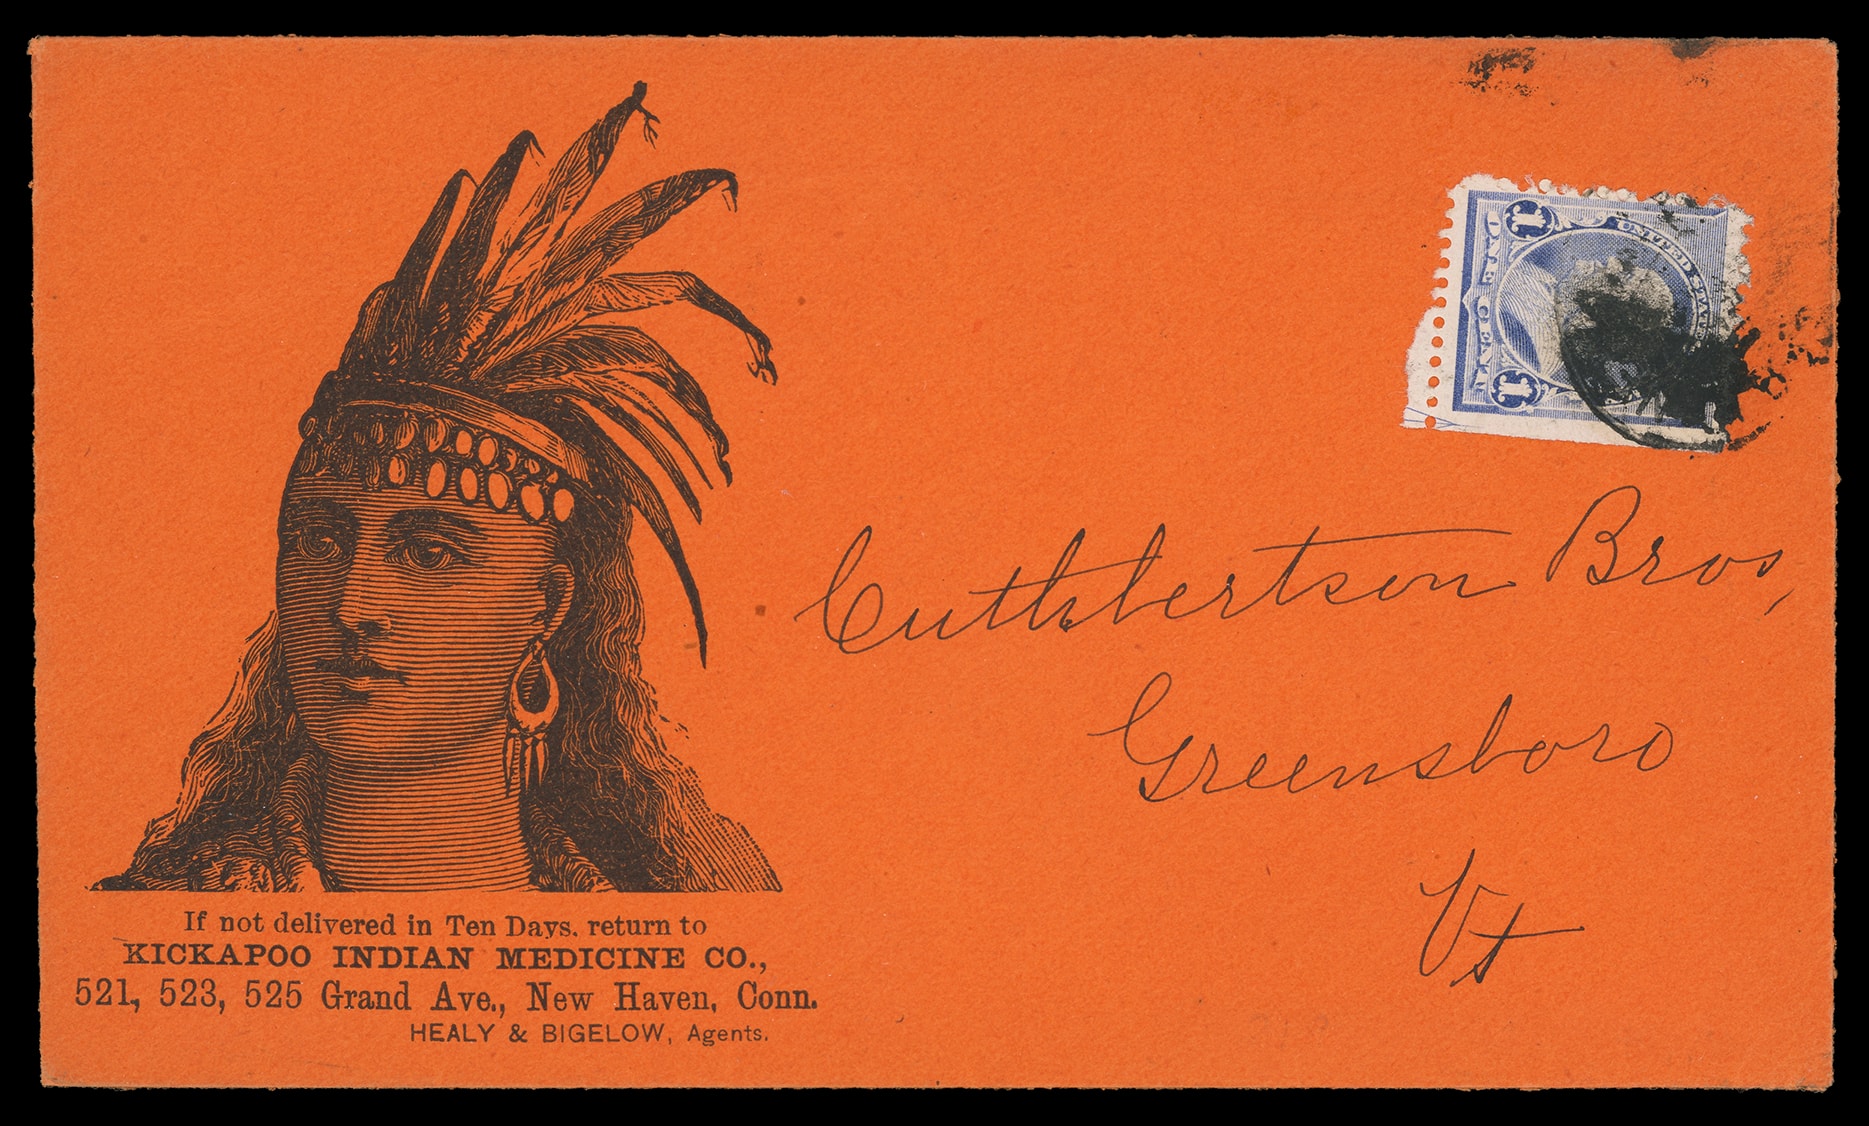 UNITED STATES
1 1
ONE CENT
Cuthbertson Bros,
Greensboro
Vt
If not delivered in Ten Days. return to
KICKAPOO INDIAN MEDICINE CO.,
521, 523, 525 Grand Ave., New Haven, Conn.
HEALY & BIGELOW, Agents.